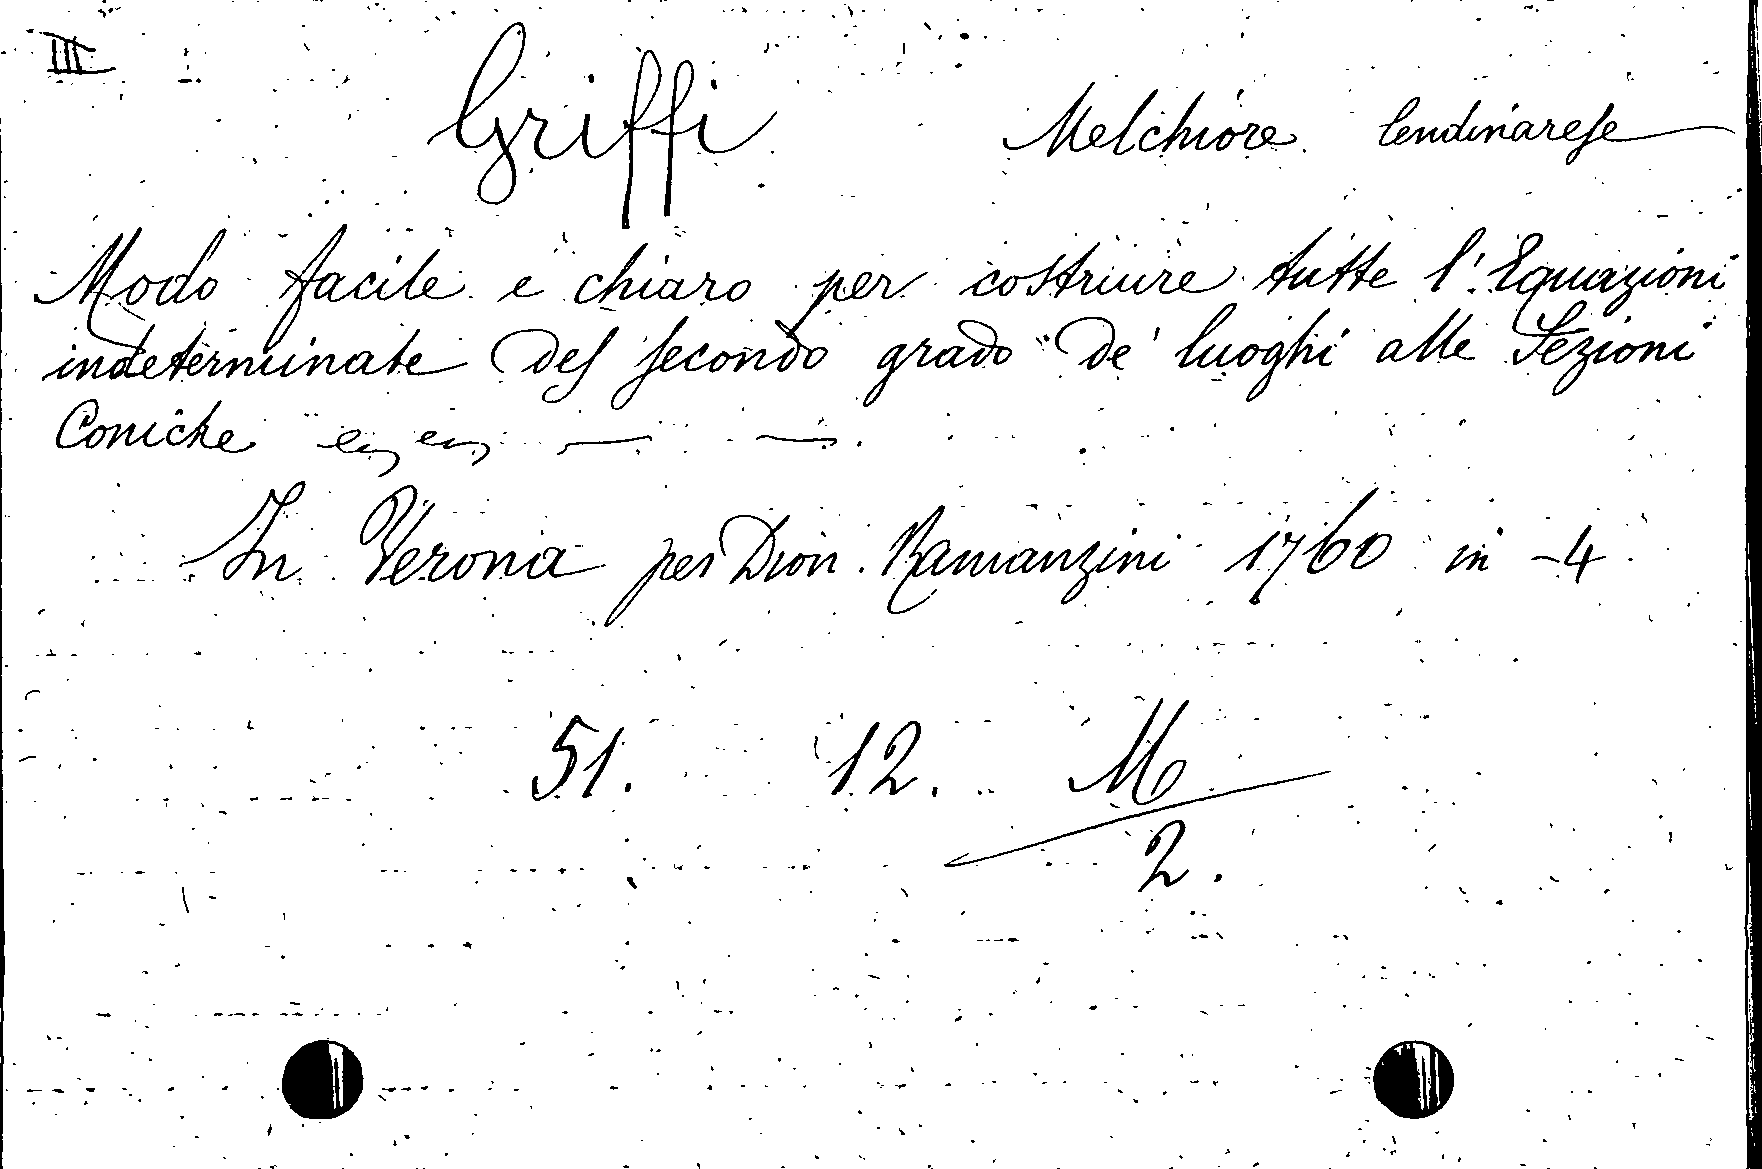 III
Griffi Melchiore lendinarese
Modo facile e chiaro per costruire tutte l'Equazioni
indeterminate del secondo grado de' luoghi alle Sezioni
Coniche
In Verona per Dion. Ramanzini 1760 in -4
51. 12. M
2.